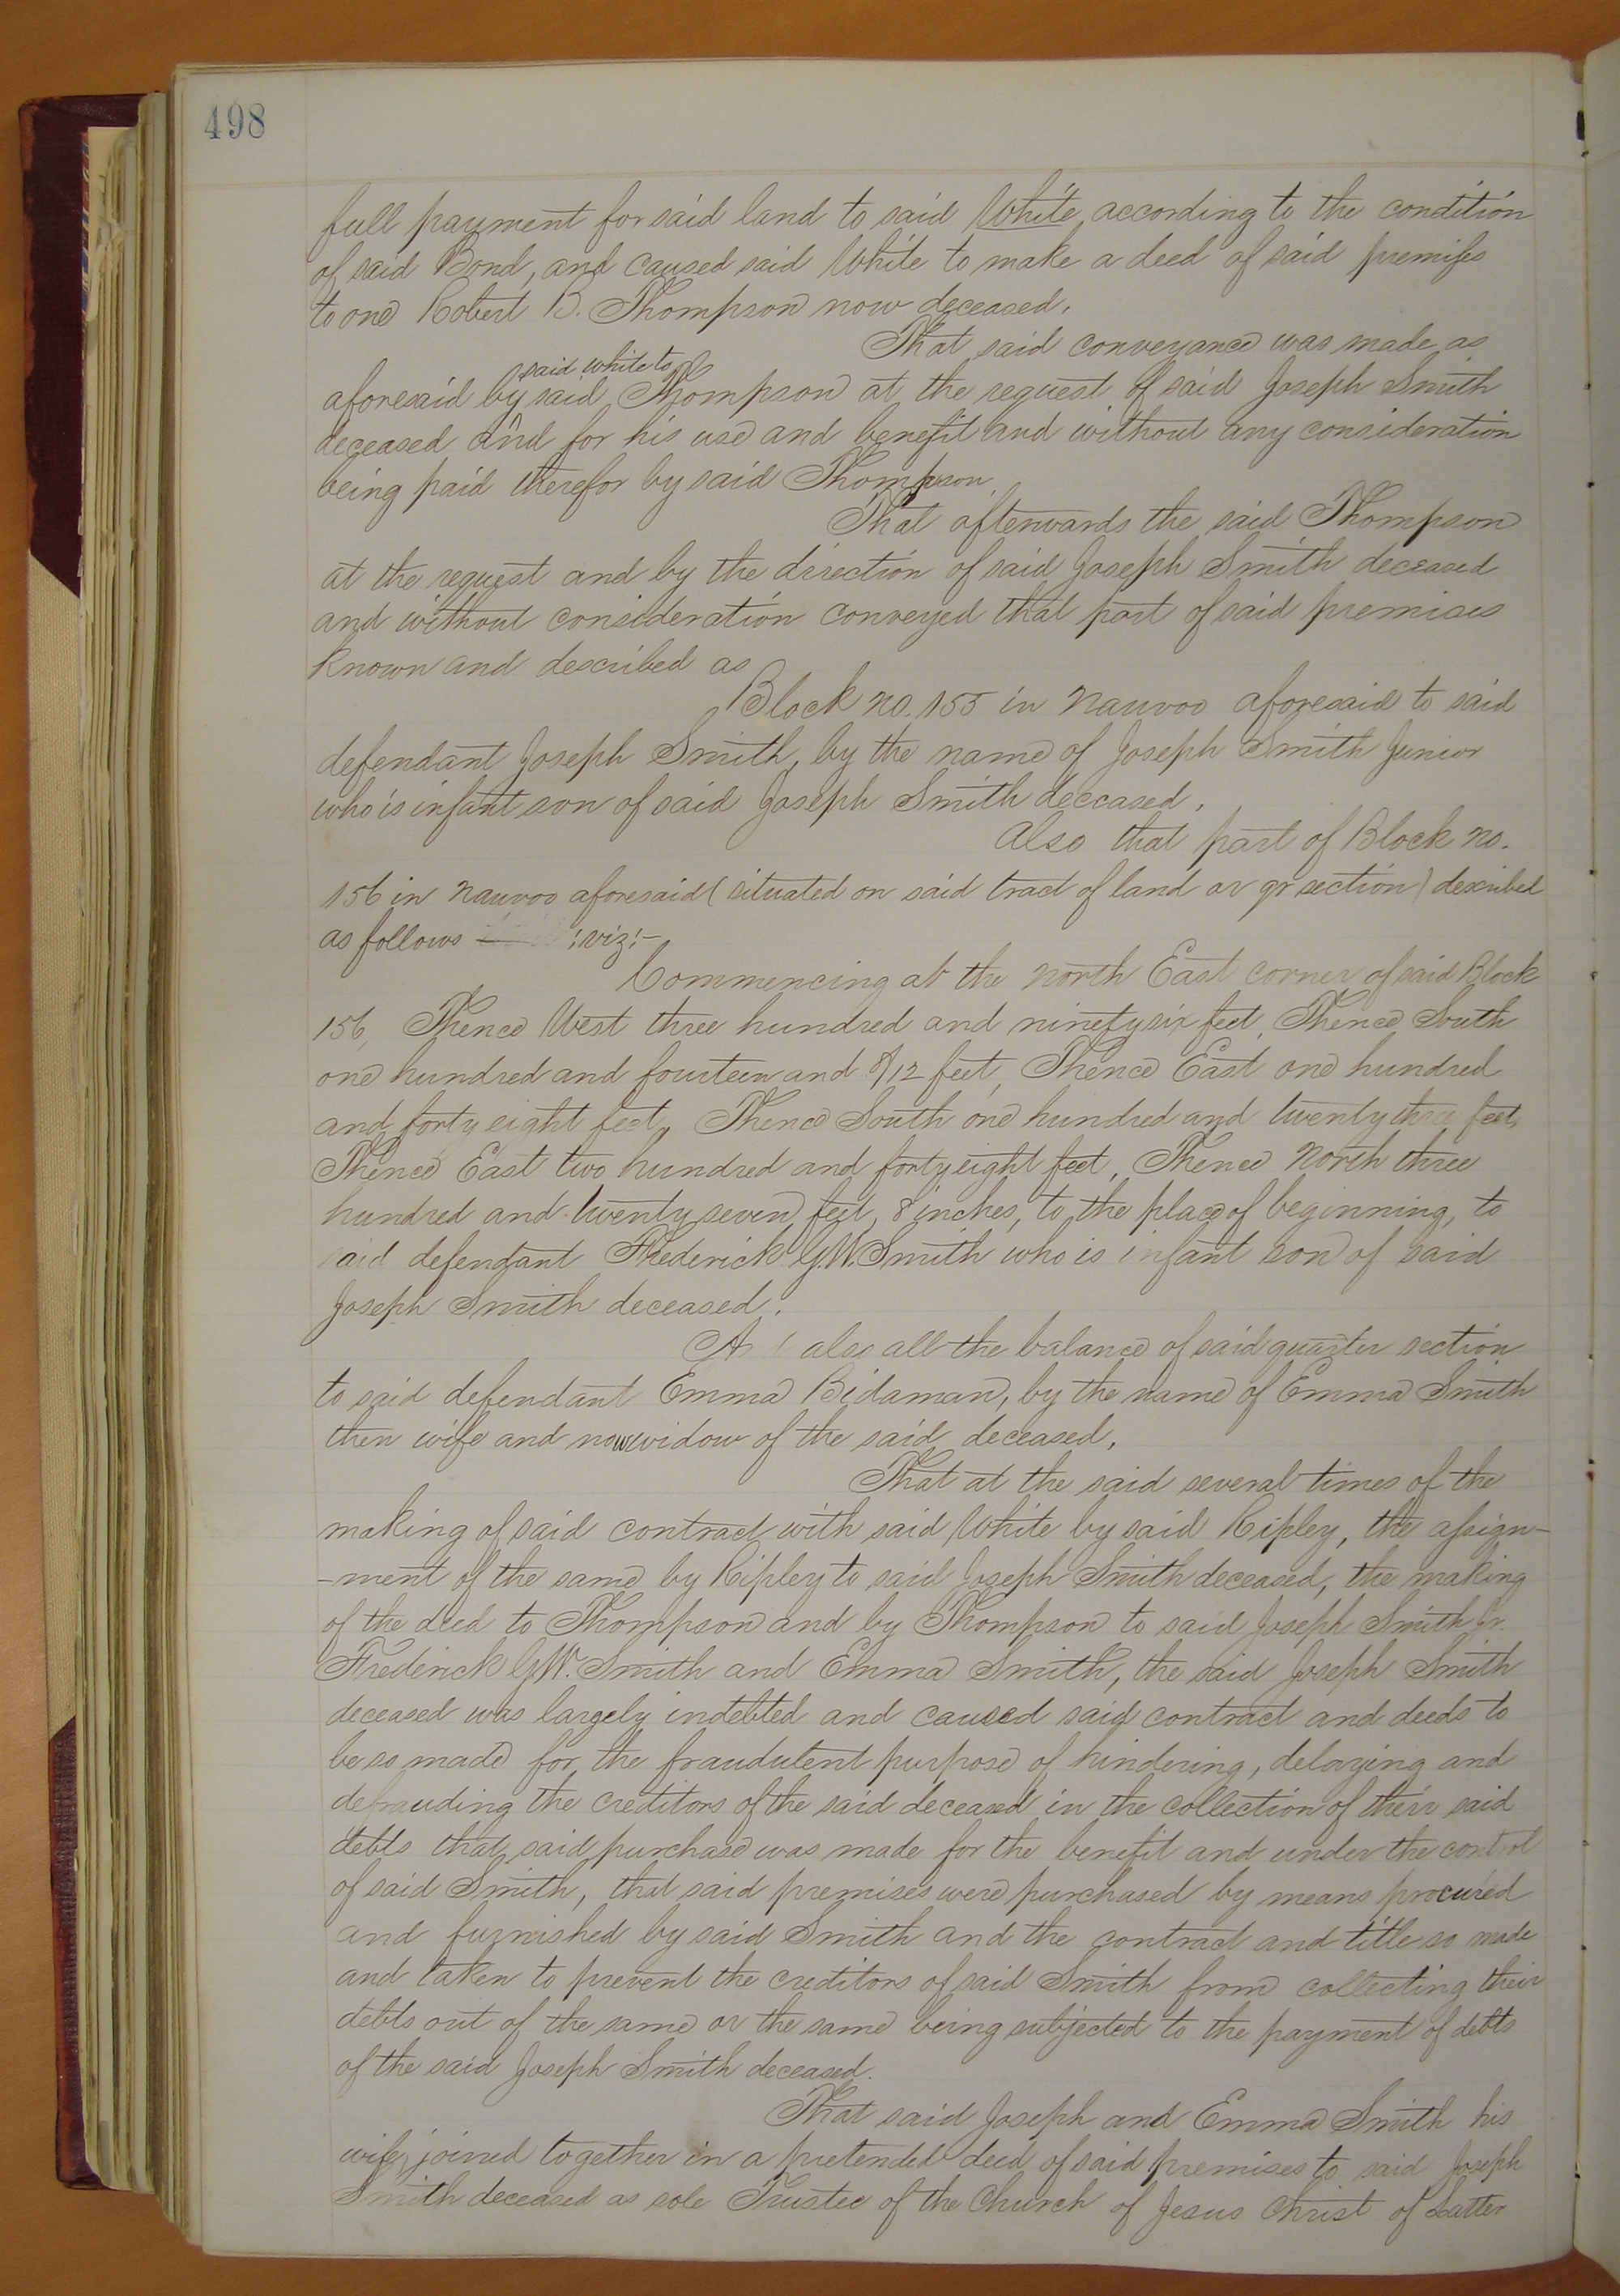 498
full payment for said land to said White according to the condition
of said Bond, and caused said White to make a deed of said premises
to one Robert B. Thompson now deceased.
That said conveyance was made as
said white to
aforesaid by said Thompson at the request of said Joseph Smith
deceased and for his use and benefit and without any consideration
being paid therefor by said Thompson.
That afterwards the said Thompson
at the request and by the direction of said Joseph Smith deceased
and without consideration conveyed that part of said premises
known and described as
Block no. 155 in Nauvoo aforesaid to said
defendant Joseph Smith, by the name of Joseph Smith Junior
who is infant son of said Joseph Smith deceased.
Also that part of Block no.
156 in Nauvoo aforesaid (situated on said tract of land or qr section) described
as follows :viz:-
Commencing at the North East corner of said Block
156, Thence West three hundred and ninety six feet, Thence South
one hundred and fourteen and 8/12 feet, Thence East one hundred
and forty eight feet, Thence South one hundred and twenty three feet,
Thence East two hundred and forty eight feet, Thence North three
hundred and twenty seven feet, 8 inches, to the place of beginning, to
said defendant Frederick G.W. Smith who is infant son of said
Joseph Smith deceased.
also all the balance of said quarter section
to said defendant Emma Bidaman, by the name of Emma Smith
then wife and now widow of the said deceased.
That at the said several times of the
making of said contract with said White by said Ripley, the assign-
-ment of the same by Ripley to said Joseph Smith deceased, the making
of the deed to Thompson and by Thompson to said Joseph Smith Jr.
Frederick G.W. Smith and Emma Smith, the said Joseph Smith
deceased was largely indebted and caused said contract and deeds to
be so made for the fraudulent purpose of hindering, delaying and
defrauding the creditors of the said deceased in the collection of their said
debts that said purchase was made for the benefit and under the control
of said Smith, that said premises were purchased by means procured
and furnished by said Smith and the contract and title so made
and taken to prevent the creditors of said Smith from collecting their
debts out of the same or the same being subjected to the payment of debts
of the said Joseph Smith deceased.
That said Joseph and Emma Smith his
wife, joined together in a pretended deed of said premises to said Joseph
Smith deceased as sole Trustee of the Church of Jesus Christ of Latter